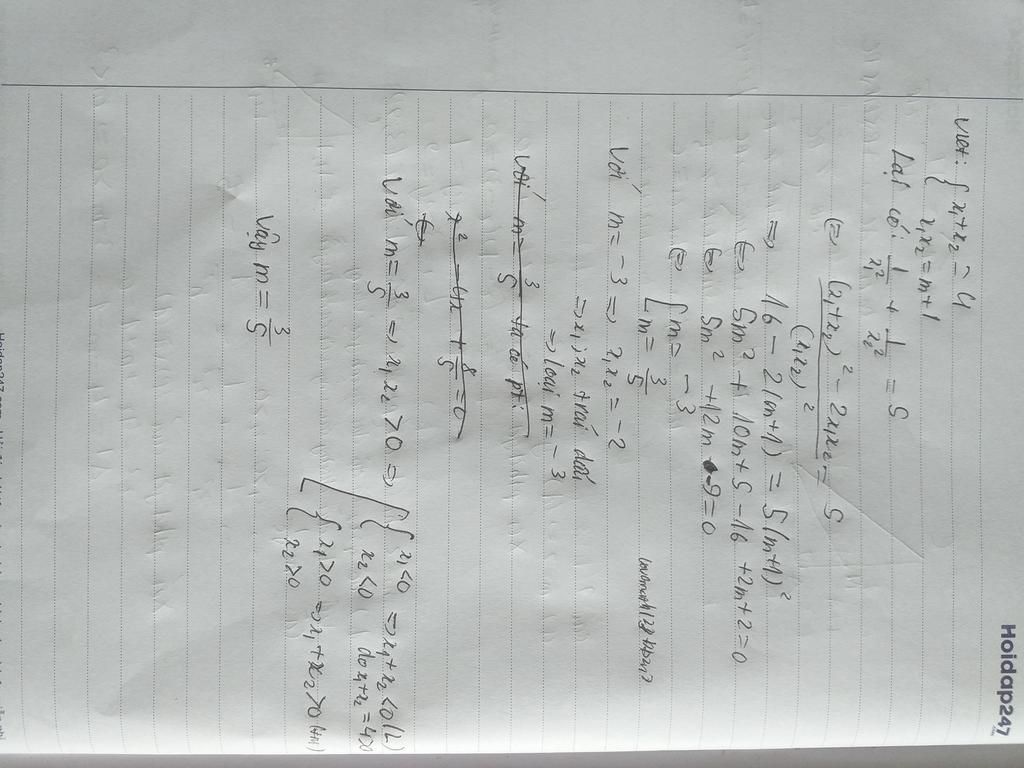 Hoidap247
Viet: { x₁ + x₂ = 4
x₁x₂ = m+1
Lại có: 1/x₁² + 1/x₂² = 5
(=) (x₁+x₂)² - 2x₁x₂ / (x₁x₂)² = 5
=> 16 - 2(m+1) = 5(m+1)²
(=) 5m² + 10m + 5 - 16 + 2m + 2 = 0
(=) 5m² + 12m - 9 = 0
(=) [ m = -3
m = 3/5
Với m = -3 => x₁x₂ = -2
=> x₁; x₂ trái dấu
=> loại m = -3
Với m = 3/5 ta có pt:
x² - 4x + 8/5 = 0
(=)
Với m = 3/5 => x₁x₂ > 0 => [ { x₁<0
x₂<0 => x₁+x₂<0 (L)
do x₁+x₂ = 4>0
{ x₁>0
x₂>0 => x₁+x₂>0 (tm)
Vậy m = 3/5